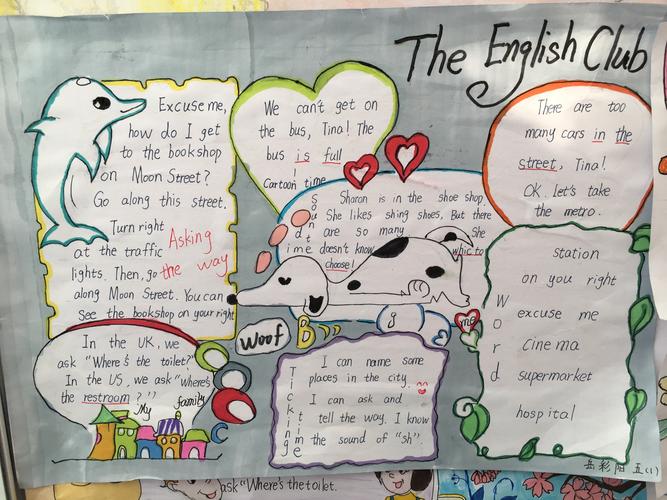 The English Club
Excuse me,
how do I get
to the bookshop
on Moon Street?
Go along this street.
Turn right
at the traffic
lights. Then, go
along Moon Street. You can
see the bookshop on your right
Asking
the way
We can't get on
the bus, Tina! The
bus is full
!
Cartoon time
There are too
many cars in the
street, Tina!
OK. Let's take
the metro.
Sound time
Sharon is in the shoe shop
She likes shing shoes, But there
are so many
She
doesn't know
which to
choose!
Woof
B
g
me
In the UK, we
ask "Where's the toilet?"
In the US, we ask "where's
the restroom?"
My family
C
Ticking time
I can name some
places in the city.
I can ask and
tell the way. I know
the sound of "sh".
Word
station
on you right
excuse me
cinema
supermarket
hospital
五(1)
ask "Where's the toilet.